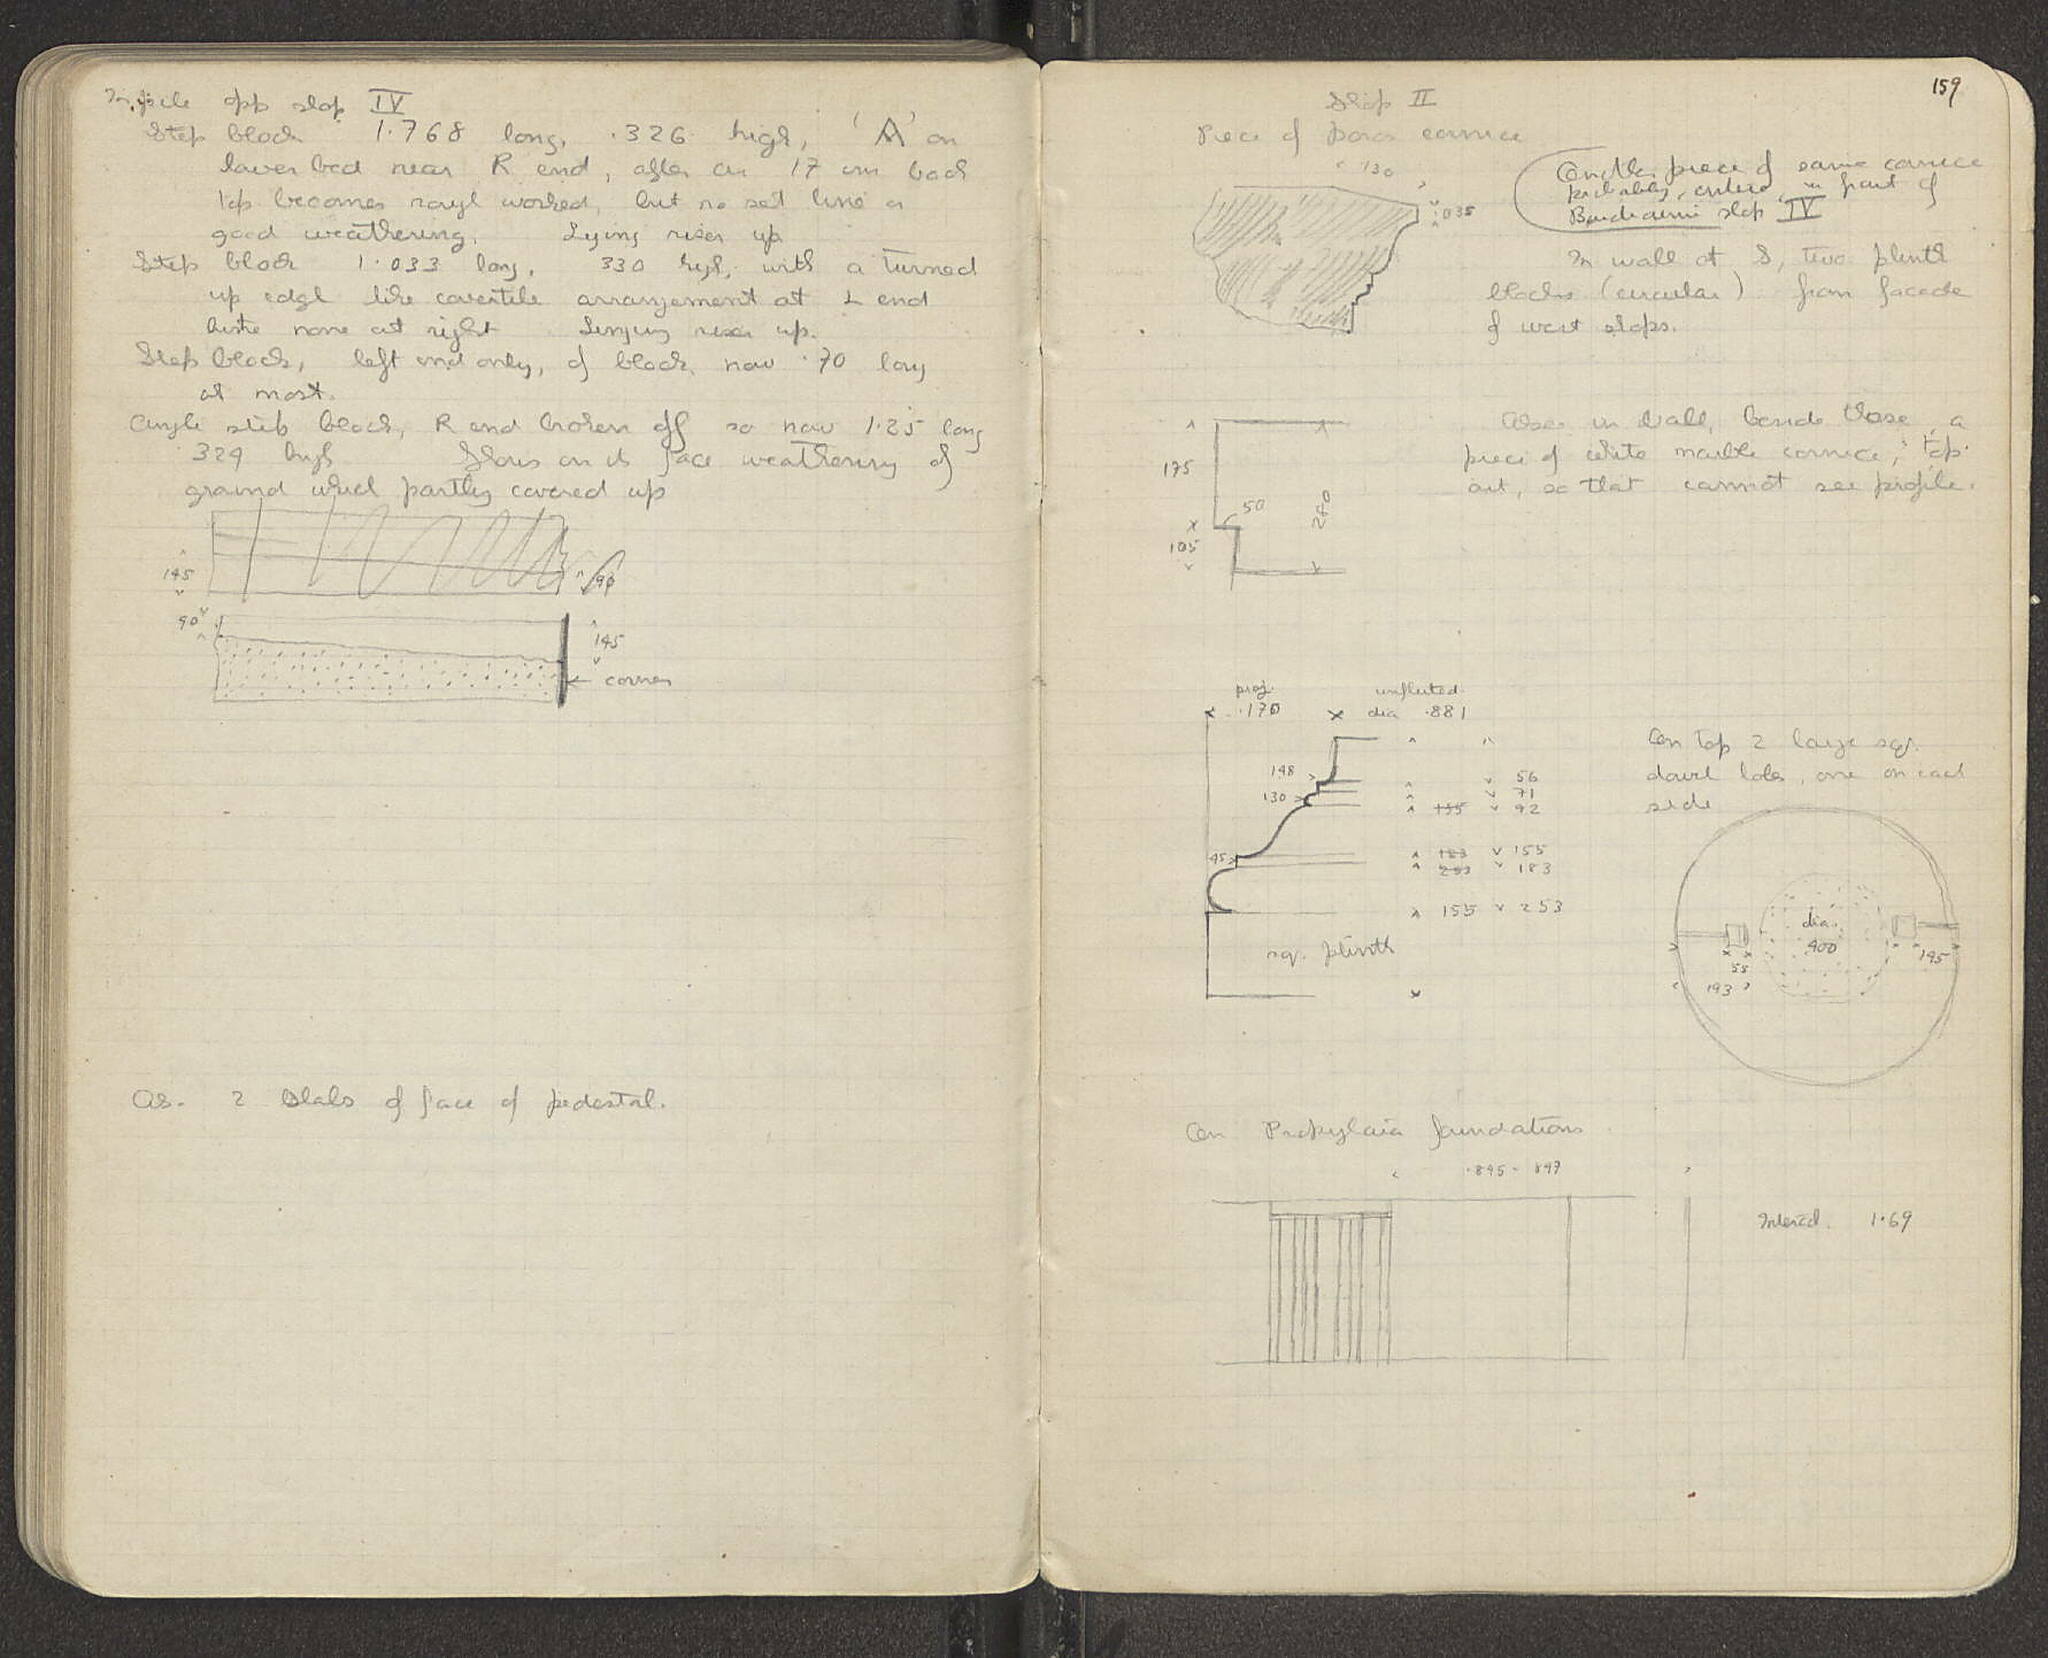 In pile opp shop IV
Step block 1.768 long, .326 high, 'A' on
lower bed near R end, after ca 17 cm back
top becomes rough worked, but no set line or
good weathering. Lying riser up
Step block 1.033 long, 330 high, with a turned
up edge like covertile arrangement at L end
but none at right Lying riser up.
Step block, left end only, of block, now .70 long
at most.
Angle step block, R end broken off so now 1.25 long
329 high Shows on its face weathering of
ground which partly covered up
145
90
90
145
corner
As. 2 slabs of face of pedestal.
159
Shop II
Piece of poros cornice
130
035
Another piece of same cornice
probably, entire, in front of
shop IV
In wall at S, two plinth
blocks (circular) from facade
of west shops.
175
50
280
105
Also in wall, beside these, a
piece of white marble cornice, top
out, so that cannot see profile.
proj.
.170
unfluted
dia .881
148
56
130
71
155 92
45
183 155
253 183
155 253
sq. plinth
On top 2 large sq.
dowel holes, one on each
side
dia.
400
55
193
195
On Propylaia foundations
.895 - 897
Interax. 1.69